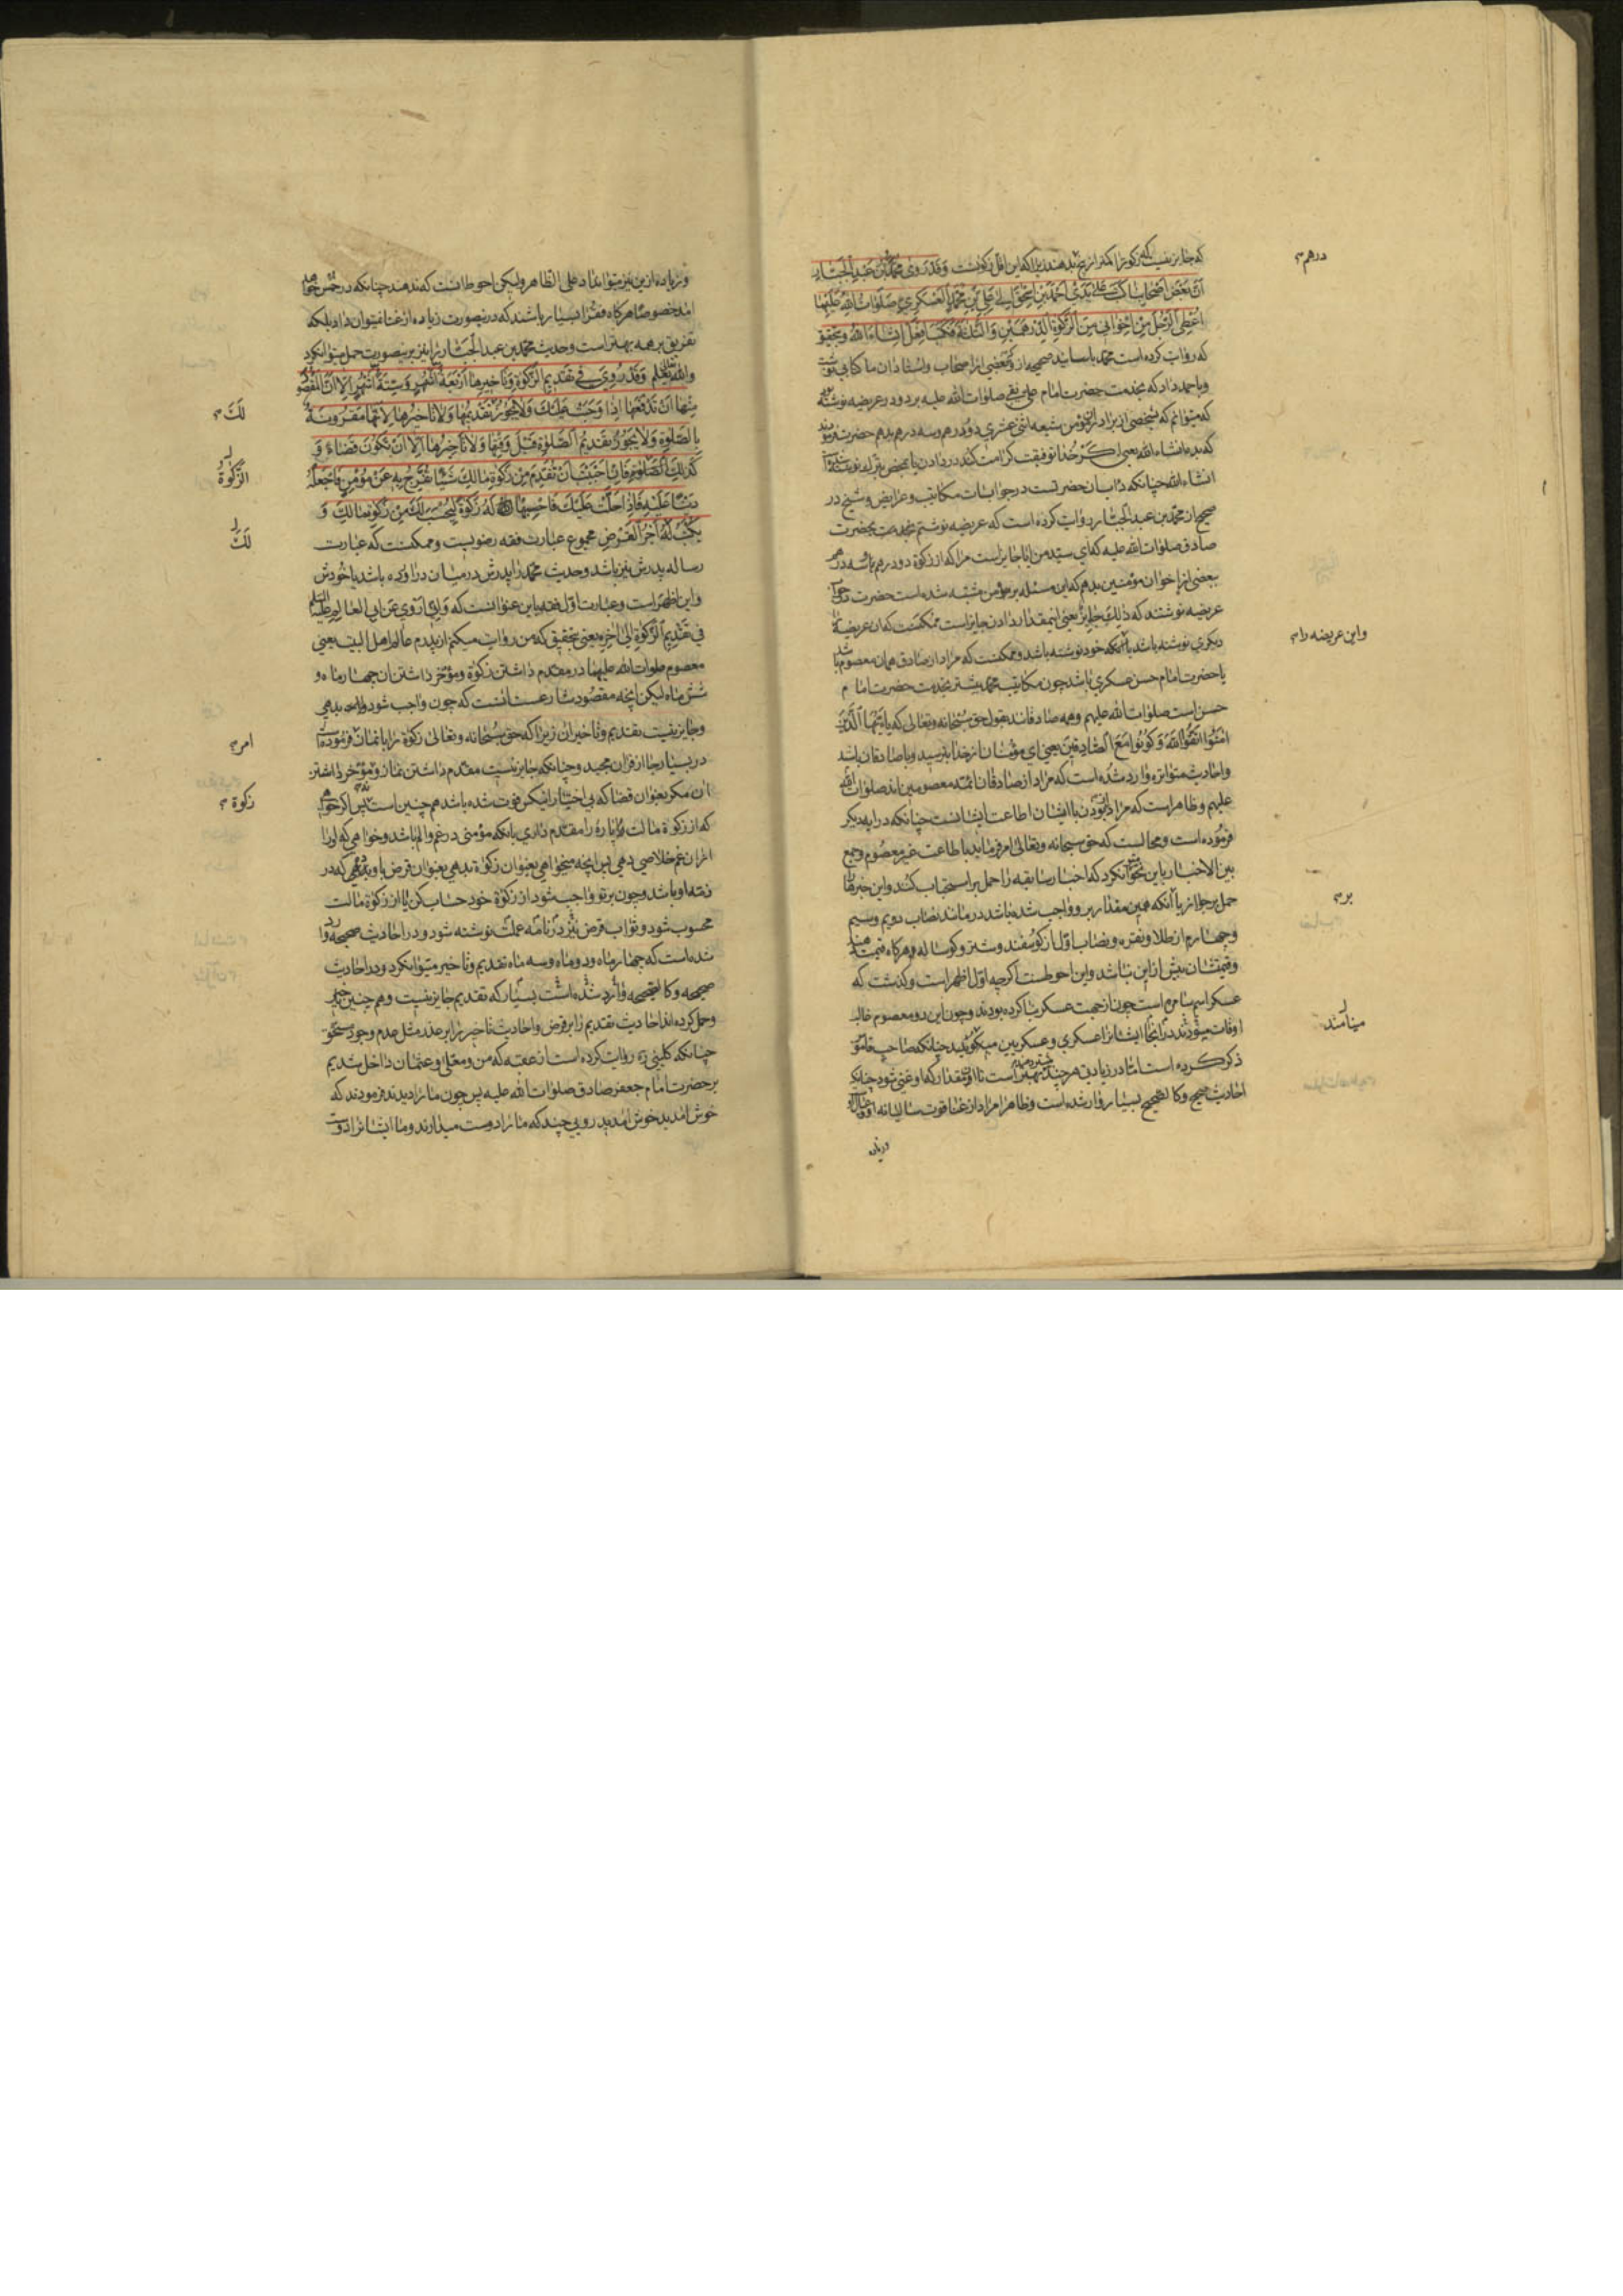 که جایز نیست که زکوة را کمتر از پنج بدهند زیرا که این اقل زکوتست وَقَدْ رَوی مُحَمَّدُ بْنُ عَبْدِ الْجَبّارِ
اَنَّ بَعْضَ اَصْحابِنا کَتَبَ عَلی یَدَیْ اَحْمَدَ بْنِ اِسْحقَ اِلی عَلِیِّ بْنِ مُحَمَّدٍ الْعَسْکَرِیِّ صَلَواتُ اللهِ عَلَیْهِما
اُعْطِی الرَّجُلَ مِنْ اِخْوانی مِنَ الزَّکوةِ الدِّرْهَمَیْنِ وَالثَّلاثَةَ فَکَتَبَ اِفْعَلْ اِنْ شاءَ اللهُ وبتحقیق
که روایت کرده است محمد باسانید صحیحه از و بعضی از اصحاب واستادان ما کتابی نوشت
وباحمد داد که بخدمت حضرت امام علی نقی صلوات الله علیه برد ودر عریضه نوشته بود
که میتوانم که شخصی از برادران مؤمن شیعه اثنی عشری دو درهم وسه درهم بدهم حضرت فرمودند
که بده انشاء الله یعنی اگر خدا توفیقت کرامت کند در دادن یا بمحض تبرک نوشته
انشاء الله چنانکه داب آن حضرتست در جوابات مکاتیب وعرایض وشیخ در
صحیح از محمد بن عبد الجبار روایت کرده است که عریضه نوشتم بخدمت حضرت
صادق صلوات الله علیه که ای سید من ایا جایز است مرا که از زکوة دو درهم یا سه درهم
ببعضی از اخوان مؤمنین بدهم که این مسئله بر مؤمن مشتبه شده است حضرت در جواب
عریضه نوشتند که ذلِکَ جایِزٌ یعنی اینمقدار دادن جایز است ممکنست که ان عریضه را
دیگری نوشته باشد یا آنکه خود نوشته باشد وممکنست که مراد از صادق همان معصوم باشد
یا حضرت امام حسن عسکری باشد چون مکاتیب محمد بیشتر بخدمت حضرت امام
حسن است صلوات الله علیهم وهمه صادقاند بقول حق سبحانه وتعالی که یا اَیُّهَا الَّذینَ
امَنُوا اتَّقُوا اللهَ وَکُونُوا مَعَ الصّادِقینَ یعنی ای مؤمنان از خدا بترسید وبا صادقان باشید
واحادیث متواتره وارد شده است که مراد از صادقان ائمه معصومین اند صلوات الله
علیهم وظاهر است که مراد از بودن با ایشان اطاعت ایشانست چنانکه در ایه دیگر
فرموده است ومحالست که حق سبحانه وتعالی امر فرماید باطاعت غیر معصوم وجمع
بین الاخبار باین نحو توانکرد که اخبار سابقه را حمل بر استحباب کنند واین خبرها را
حمل بر جواز یا آنکه همین مقدار بر او واجب شده باشد در مانند نصاب دویم وسیم
وچهارم از طلا ونقره ونصاب اول از گوسفند وشتر وگوساله وهرگاه قیمت
وقیمتشان بیش از این نباشد واین احوطست اگرچه اول اظهر است وگذشت که
عسکر اسم سامره است چون از جهت عسکر بنا کرده بودند وچون این دو معصوم غالب
اوقات میبودند در آنجا ایشانرا عسکری وعسکریین میگویند چنانکه صاحب قاموس
ذکر کرده است اما در زیادتی هر چند بیشتر دهند بهتر است تا آن مقدار که او غنی شود چنانکه
احادیث صحیح وکالصحیح بسیار وارد شده است وظاهرا مراد از غنا قوت سالیانه او وعیال او
وزیاده
درهم
واین عریضه را
بر
مینامند
وزیاده ازین نیز میتواند داد علی الظاهر ولیکن احوط آنست که ندهند چنانکه در خمس خواهد
امد خصوصا هرگاه فقرا بسیار باشند که درینصورت زیاده از غنا نمیتوان داد بلکه
تفریق بر همه بهتر است وحدیث محمد بن عبد الجبار را نیز برینصورت حمل میتوانکرد
والله تعالی یعلم وَقَدْ رُوِیَ فی تَقْدیمِ الزَّکوةِ وَتَأخیرِها اَرْبَعَةُ اَشْهُرٍ وَسِتَّةُ اَشْهُرٍ اِلّا اَنَّ الْمَقْصُودَ
مِنْها اَنْ تَدْفَعَها اِذا وَجَبَتْ عَلَیْکَ وَلا یَجُوزُ تَقْدیمُها وَلا تَأخیرُها لِاَنَّها مَقْرُونَةٌ
بِالصَّلوةِ وَلا یَجُوزُ تَقْدیمُ الصَّلوةِ قَبْلَ وَقْتِها وَلا تَأخیرُها اِلّا اَنْ تَکُونَ قَضاءً وَ
کَذلِکَ الزَّکوةُ فَاِنْ اَحْبَبْتَ اَنْ تُقَدِّمَ مِنْ زَکوةِ مالِکَ شَیْئًا تُفَرِّجُ بِهِ عَنْ مُؤْمِنٍ فَاجْعَلْهُ
دَیْنًا عَلَیْهِ فَاِذا حَلَّتْ عَلَیْکَ فَاحْسِبْها لَهُ زَکوةً لِیُحْسَبَ لَکَ مِنْ زَکوةِ مالِکَ وَ
یُکْتَبُ لَهُ اَجْرُ الْقَرْضِ مجموع عبارت فقه رضویست وممکنست که عبارت
رساله پدرش نیز باشد وحدیث محمد را پدرش در میان در آورده باشد یا خودش
واین اظهر است وعبارت اول فقه باین عنوانست که وَاِنّی اَرْوی عَنْ اَبِی الْعالِمِ علیه السلم
فی تَقْدیمِ الزَّکوةِ اِلی اخِرِهِ یعنی بتحقیق که من روایت میکنم از پدرم عالم اهل البیت یعنی
معصوم صلوات الله علیهما در مقدم داشتن زکوة ومؤخر داشتن آن چهار ماه و
شش ماه لیکن انچه مقصود شارعست آنست که چون واجب شود بدهی
وجایز نیست تقدیم وتأخیر ان زیرا که حق سبحانه وتعالی زکوة را با نماز فرموده است
در بسیار جا از قران مجید وچنانکه جایز نیست مقدم داشتن نماز ومؤخر داشتن
ان مگر بعنوان قضا که بی اختیار ازکسی فوت شده باشد همچنین است پس اگر خواهی
که از زکوة مالت پارۀ را مقدم داری بانکه مؤمنی در غم والم باشد وخواهی که او را
از ان غم خلاصی دهی پس انچه میخواهی بعنوان زکوة بدهی بعنوان قرض باو بده که در
ذمه او باشد وچون بر تو واجب شود از زکوة خود حساب کن تا از زکوة مالت
محسوب شود وثواب قرض نیز در نامه عملت نوشته شود ودر احادیث صحیحه وارد
شده است که چهار ماه ودو ماه وسه ماه تقدیم وتأخیر میتوانکرد ودر احادیث
صحیحه وکالصحیحه وارد شده است بسیار که تقدیم جایز نیست وهمچنین تاخیر
وحمل کرده اند احادیث تقدیم را بر قرض واحادیث تاخیر را بر عذر مثل عدم وجود مستحق
چنانکه کلینی ره روایت کرده است از عقبه که من ومعلی وعثمان داخل شدیم
بر حضرت امام جعفر صادق صلوات الله علیه پس چون ما را دیدند فرمودند که
خوش امدید خوش امدید رویی چند که ما را دوست میدارند وما ایشانرا دوست
لَکَ
الزَّکوةُ
لَکَ
امر
زکوة